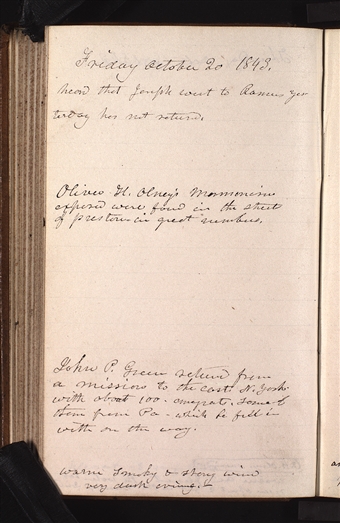 Friday October 20 1843.
heard that Joseph went to Ramus yes
terday has not return.
Oliver H. Olney's Mormonism
exposed were found in the streets
of preston in great numbers.
John P. Green returned from
a mission to the east N. York
with about 100 emigrat. some of
them from Pa - which he fell in
with on the way.
warm smoky & strong wind
very dusk evening.